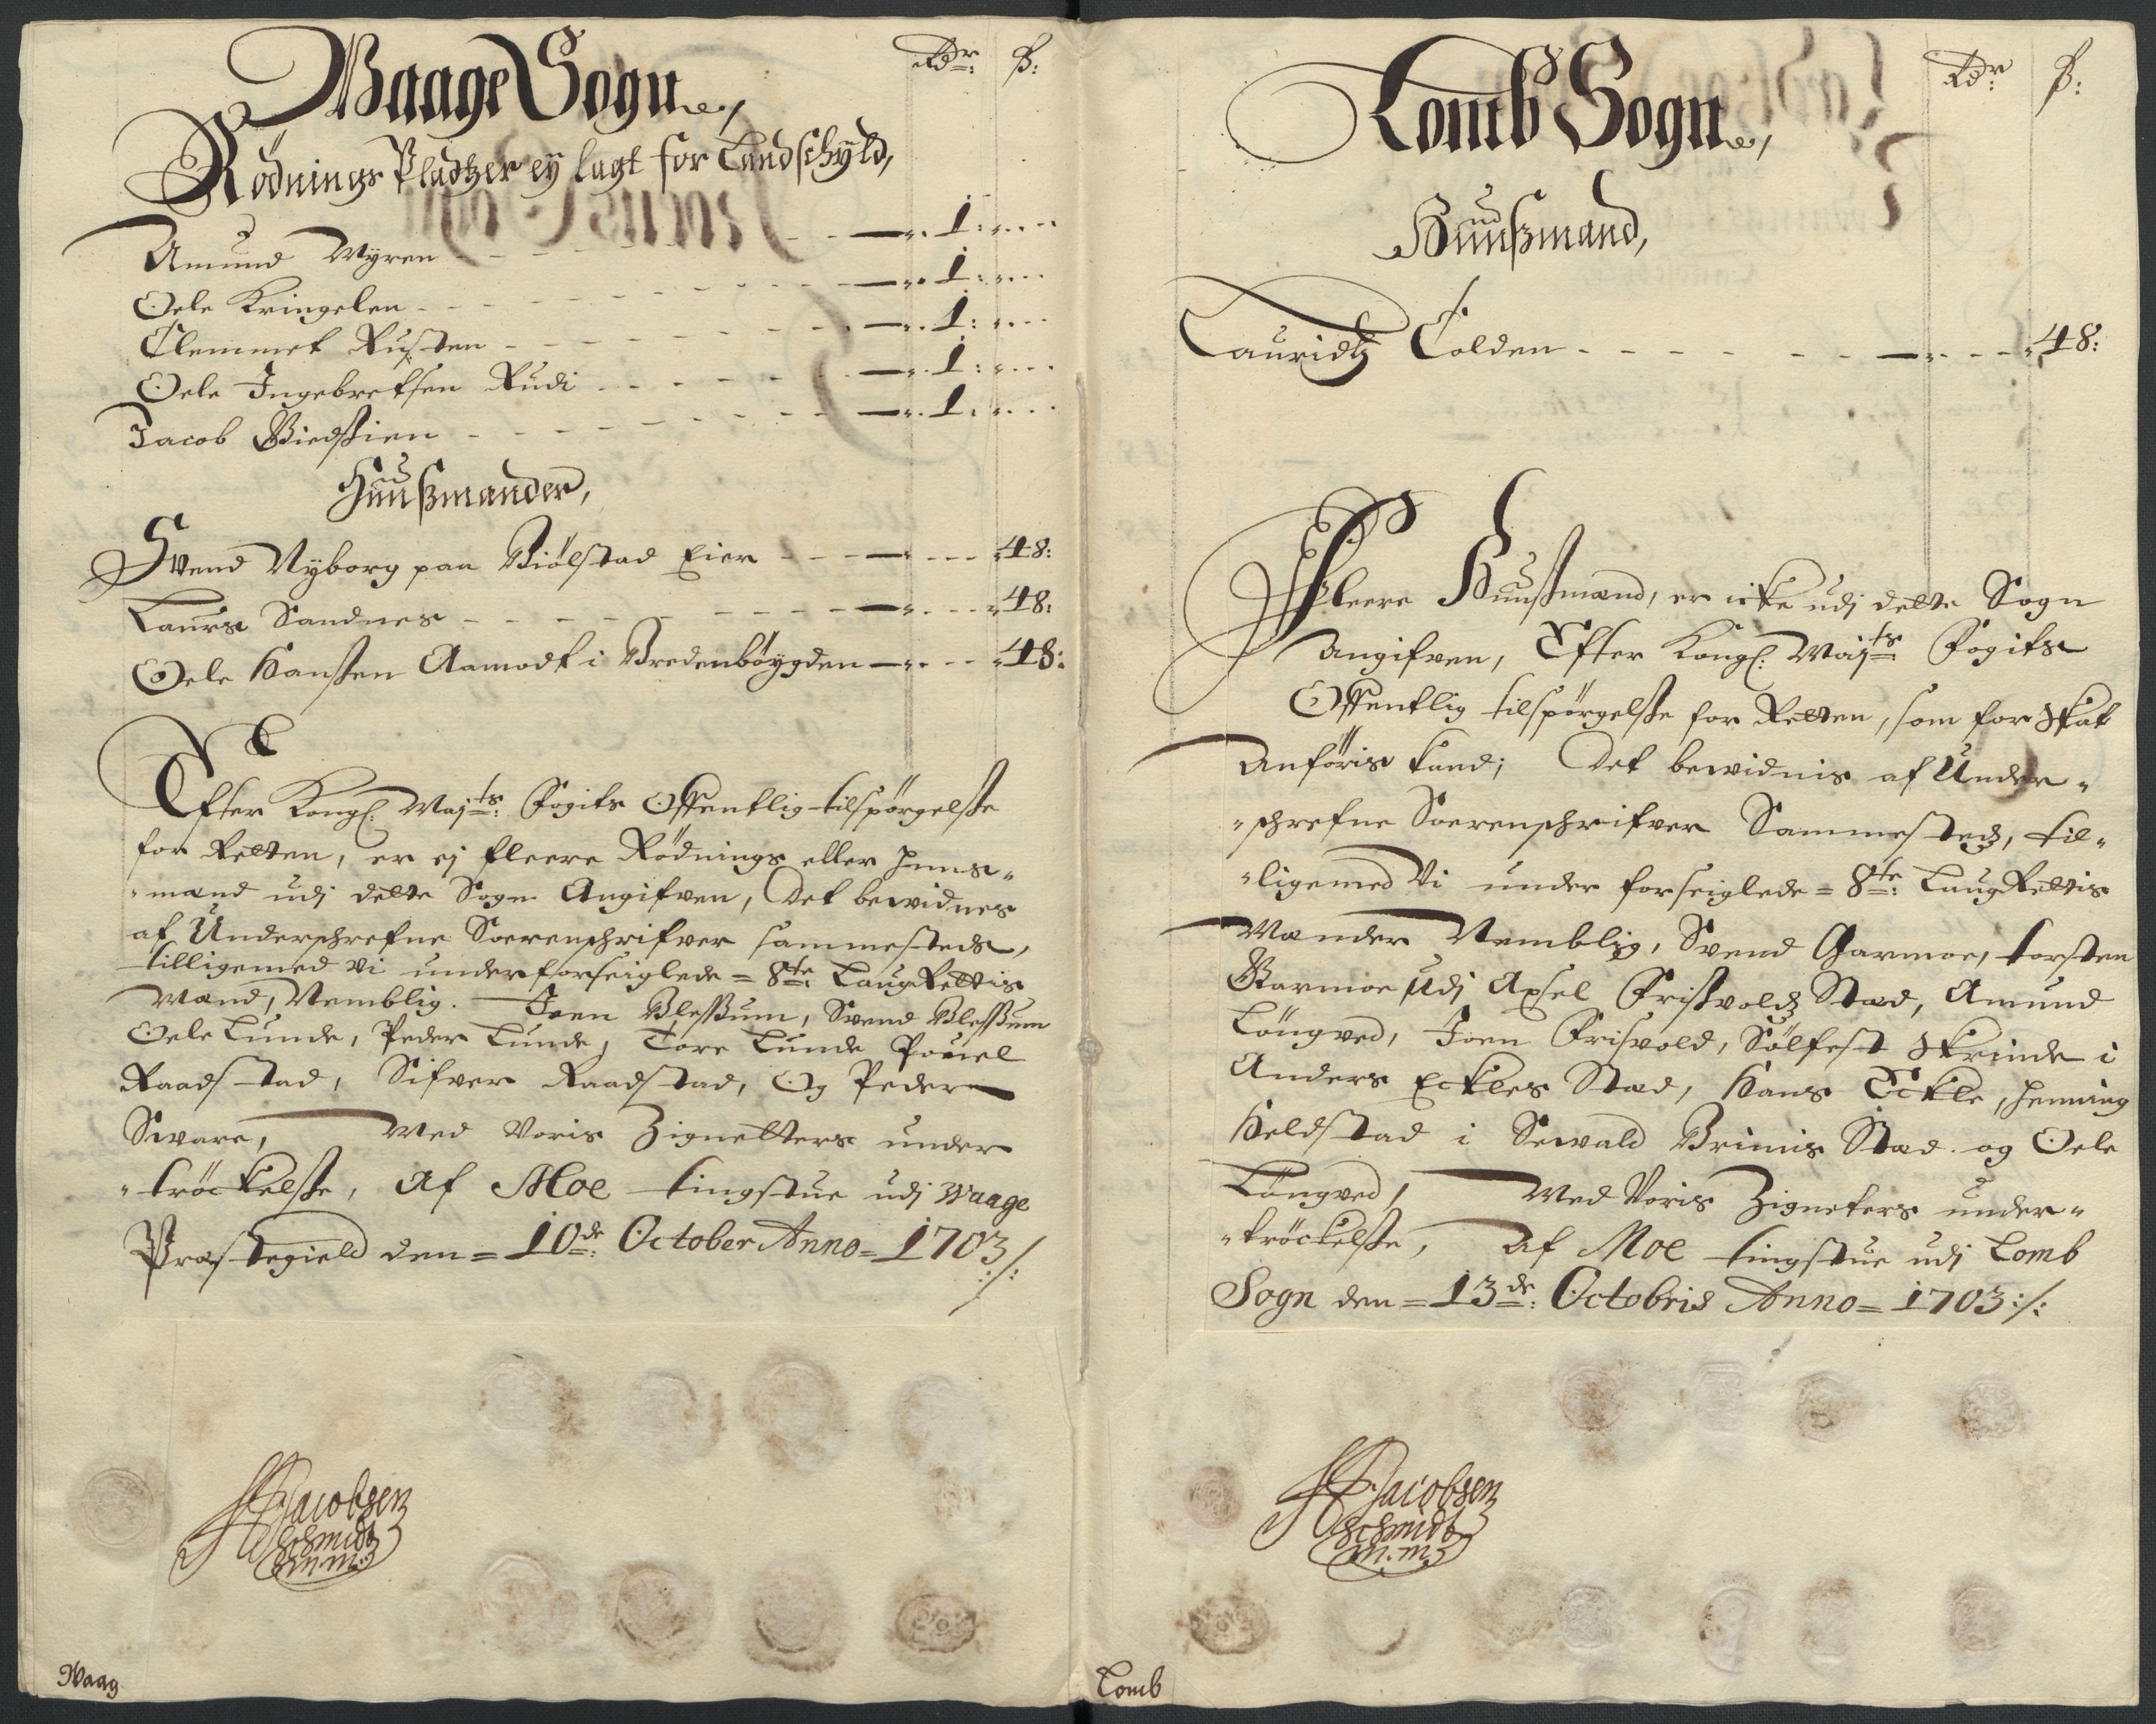 Waage Sogn,
Rdr: ß:
Rødnings Pladtzer eÿ lagt for Landschÿld,
Amund Myren - - - 1: ...
Oele Kringelen - - - 1: ...
Clemmet Rusten - - - 1: ...
Oele Ingebretsen Rudi - - - 1: ...
Jacob Biedstien - - - 1: ...
Huußmænder,
Svend Nyborg paa Biølstad Eier - - - 48:
Laurs Sandnes - - - 48:
Oele Hanßen Aamodt i Bredenbøygden - - - 48:
Efter Kongl: Maj:ts Fogits Offentlig tilspørgelße
for Retten, er ej fleere Rødnings eller huus-
mænd udj dette Sogn Angifven, Det bewidnes
af Underschrefne Sorenschrifver sammesteds,
tilligemed vi underforseiglede = 8te: LaugRettis
Mænd, Nemblig. Joen Bleßum, Svend Bleßum
Oele Lunde, Peder Lunde, Tore Lunde Pouel
Raadstad, Sifver Raadstad, Og Peder
Sware, Med Voris Zignetters under
trøckelße, Af Moe tingstue udj Waage
Præstegield den = 10de: October Anno = 1703 ./.
Jacobsen
Schmidt
m.m
Waag
Lomb Sogn,
Rdr: ß:
Huußmænd,
Lauridtz Colden - - - 48:
Fleere Huußmænd, er icke udj dette Sogn
angifven, Efter Kongl: Maj:ts Fogits
Offentlig tilspørgelße for Retten, som for Skat
Anføris kand; Det bewidnis af Under-
schrefne Sorenschrifver Sammestedtz, til-
ligemed Vi under forseiglede = 8te: LaugRettis
Mænder Nemblig, Svend Garmoe, torsten
Garmoe udj Axsel Frißvoldtz Stæd, Amund
Løngved, Joen Frisvold, Sølfest Skrinde i
Anders Eckles Stæd, Hans Eckle, henning
Heldstad i Sewald Brimis Stæd og Oele
Løngved, Med Voris Zigneters under-
trøckelße, Af Moe tingstue udj Lomb
Sogn den = 13de: Octobris Anno = 1703 :/:
Jacobsen
Schmidt
m.m
Lomb